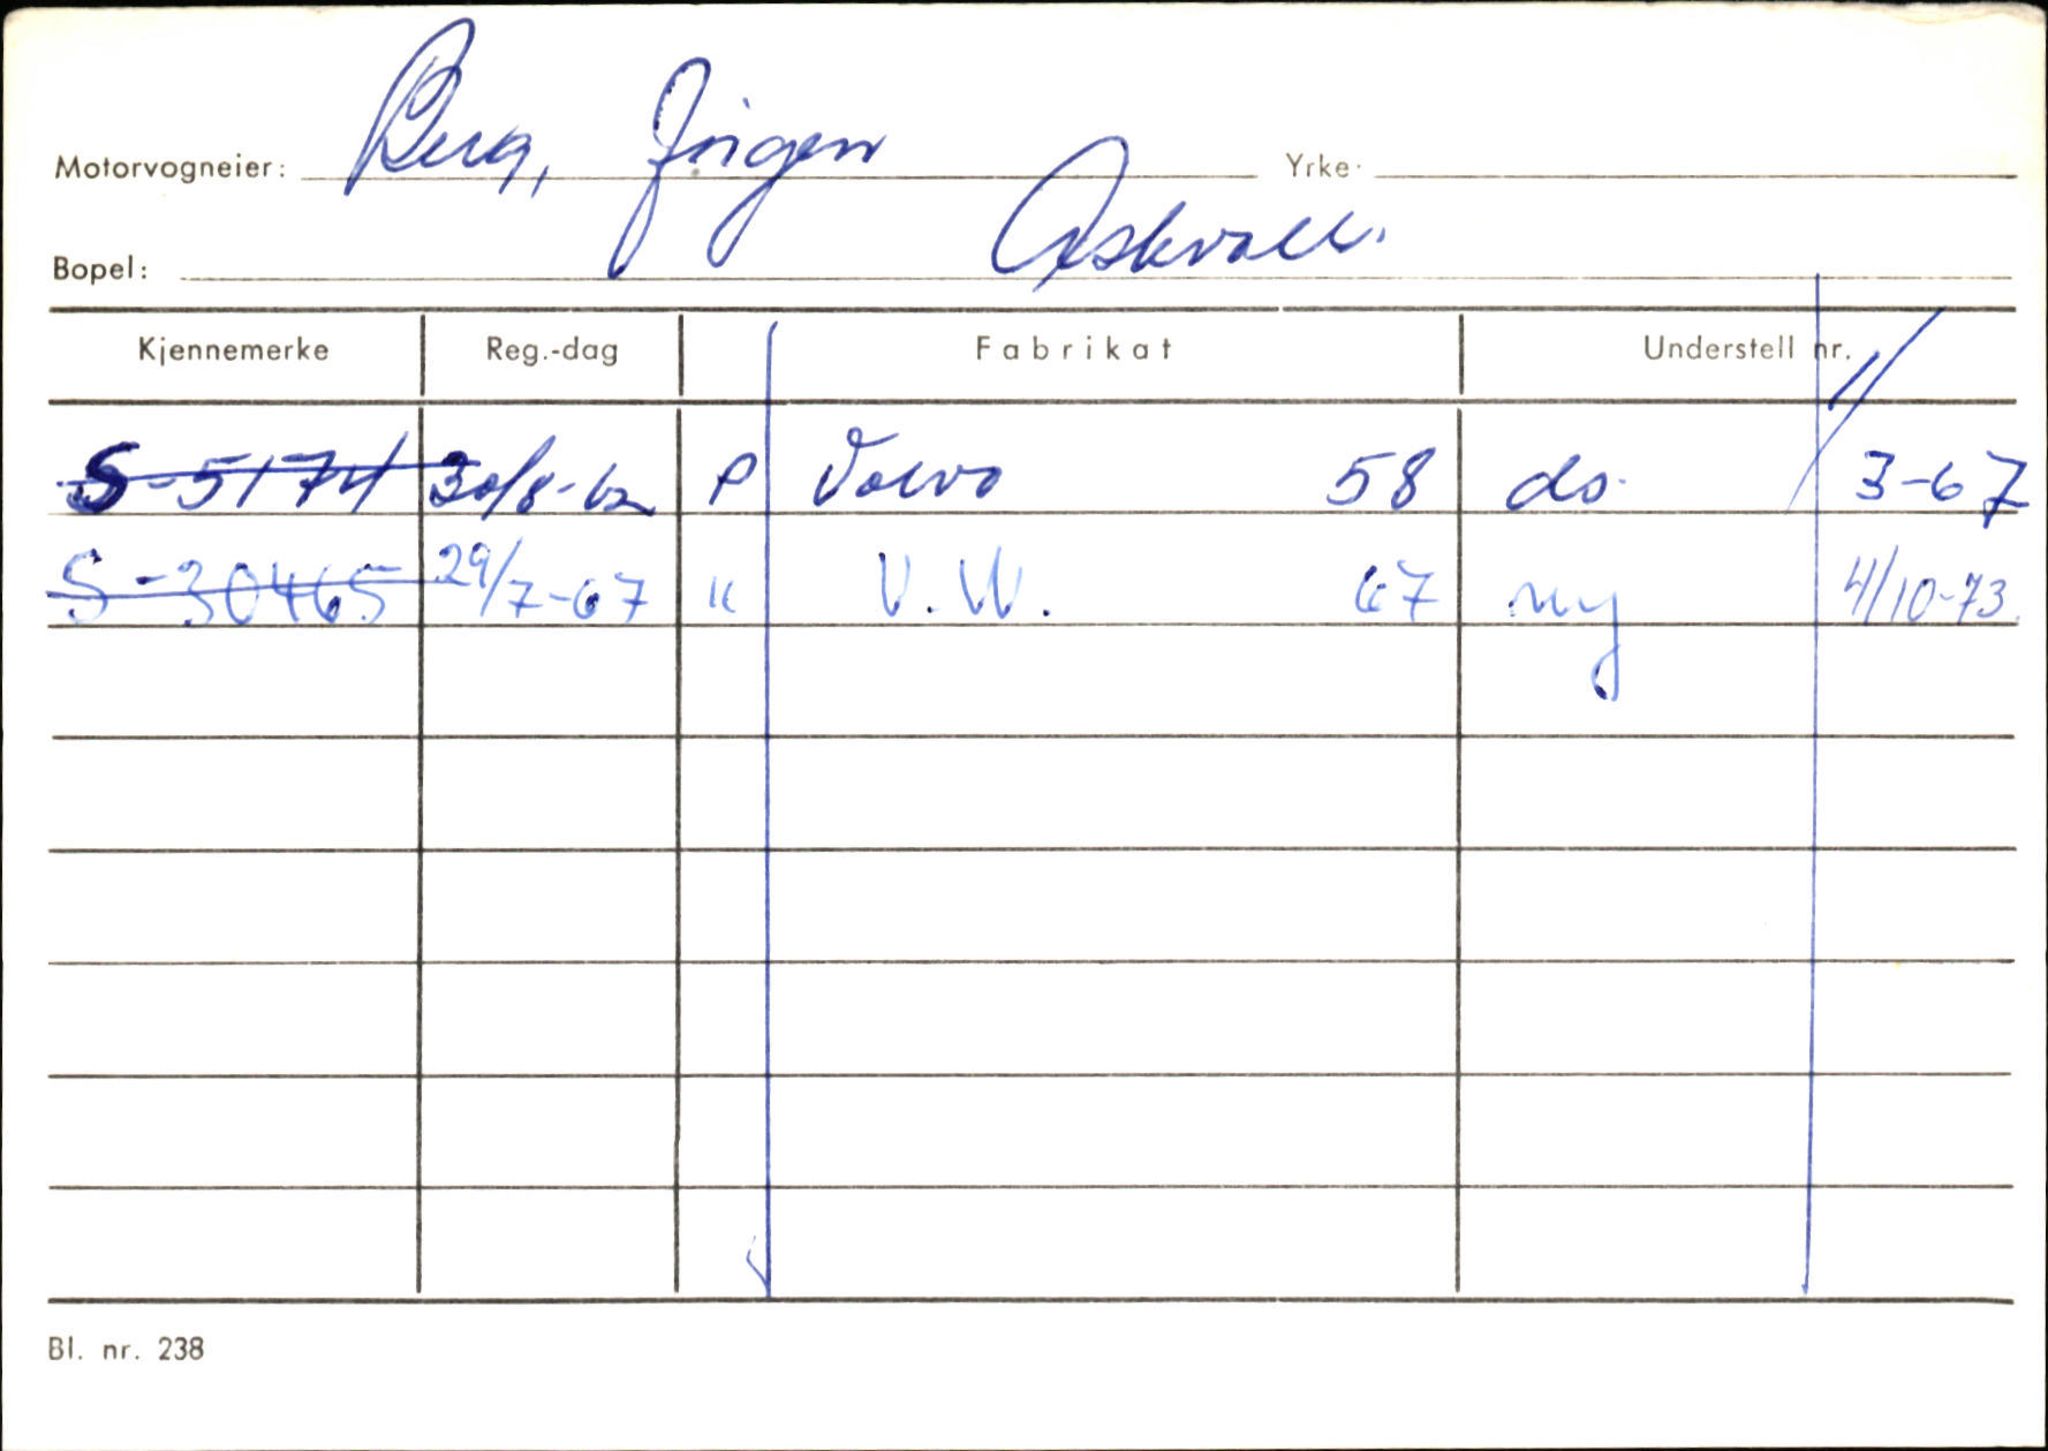 Motorvogneier: Berg, Jörgen Yrke:
Bopel: Askvoll.
Kjennemerke Reg.-dag Fabrikat Understell nr.
S-5174 30/8-62 P Volvo 58 ds. 3-67
S-30465 29/7-67 " V.W. 67 ny 4/10-73.
Bl. nr. 238